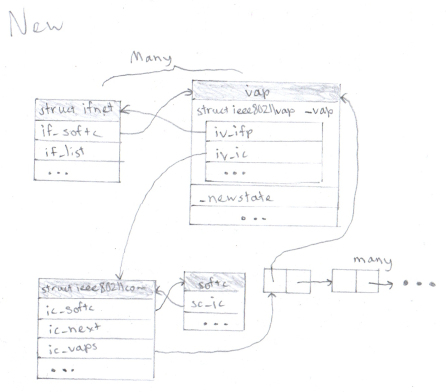 New
Many
struct ifnet
if_softc
if_list
...
vap
struct ieee80211vap _vap
iv_ifp
iv_ic
...
_newstate
...
struct ieee80211com
ic_softc
ic_next
ic_vaps
...
softc
sc_ic
...
many
...